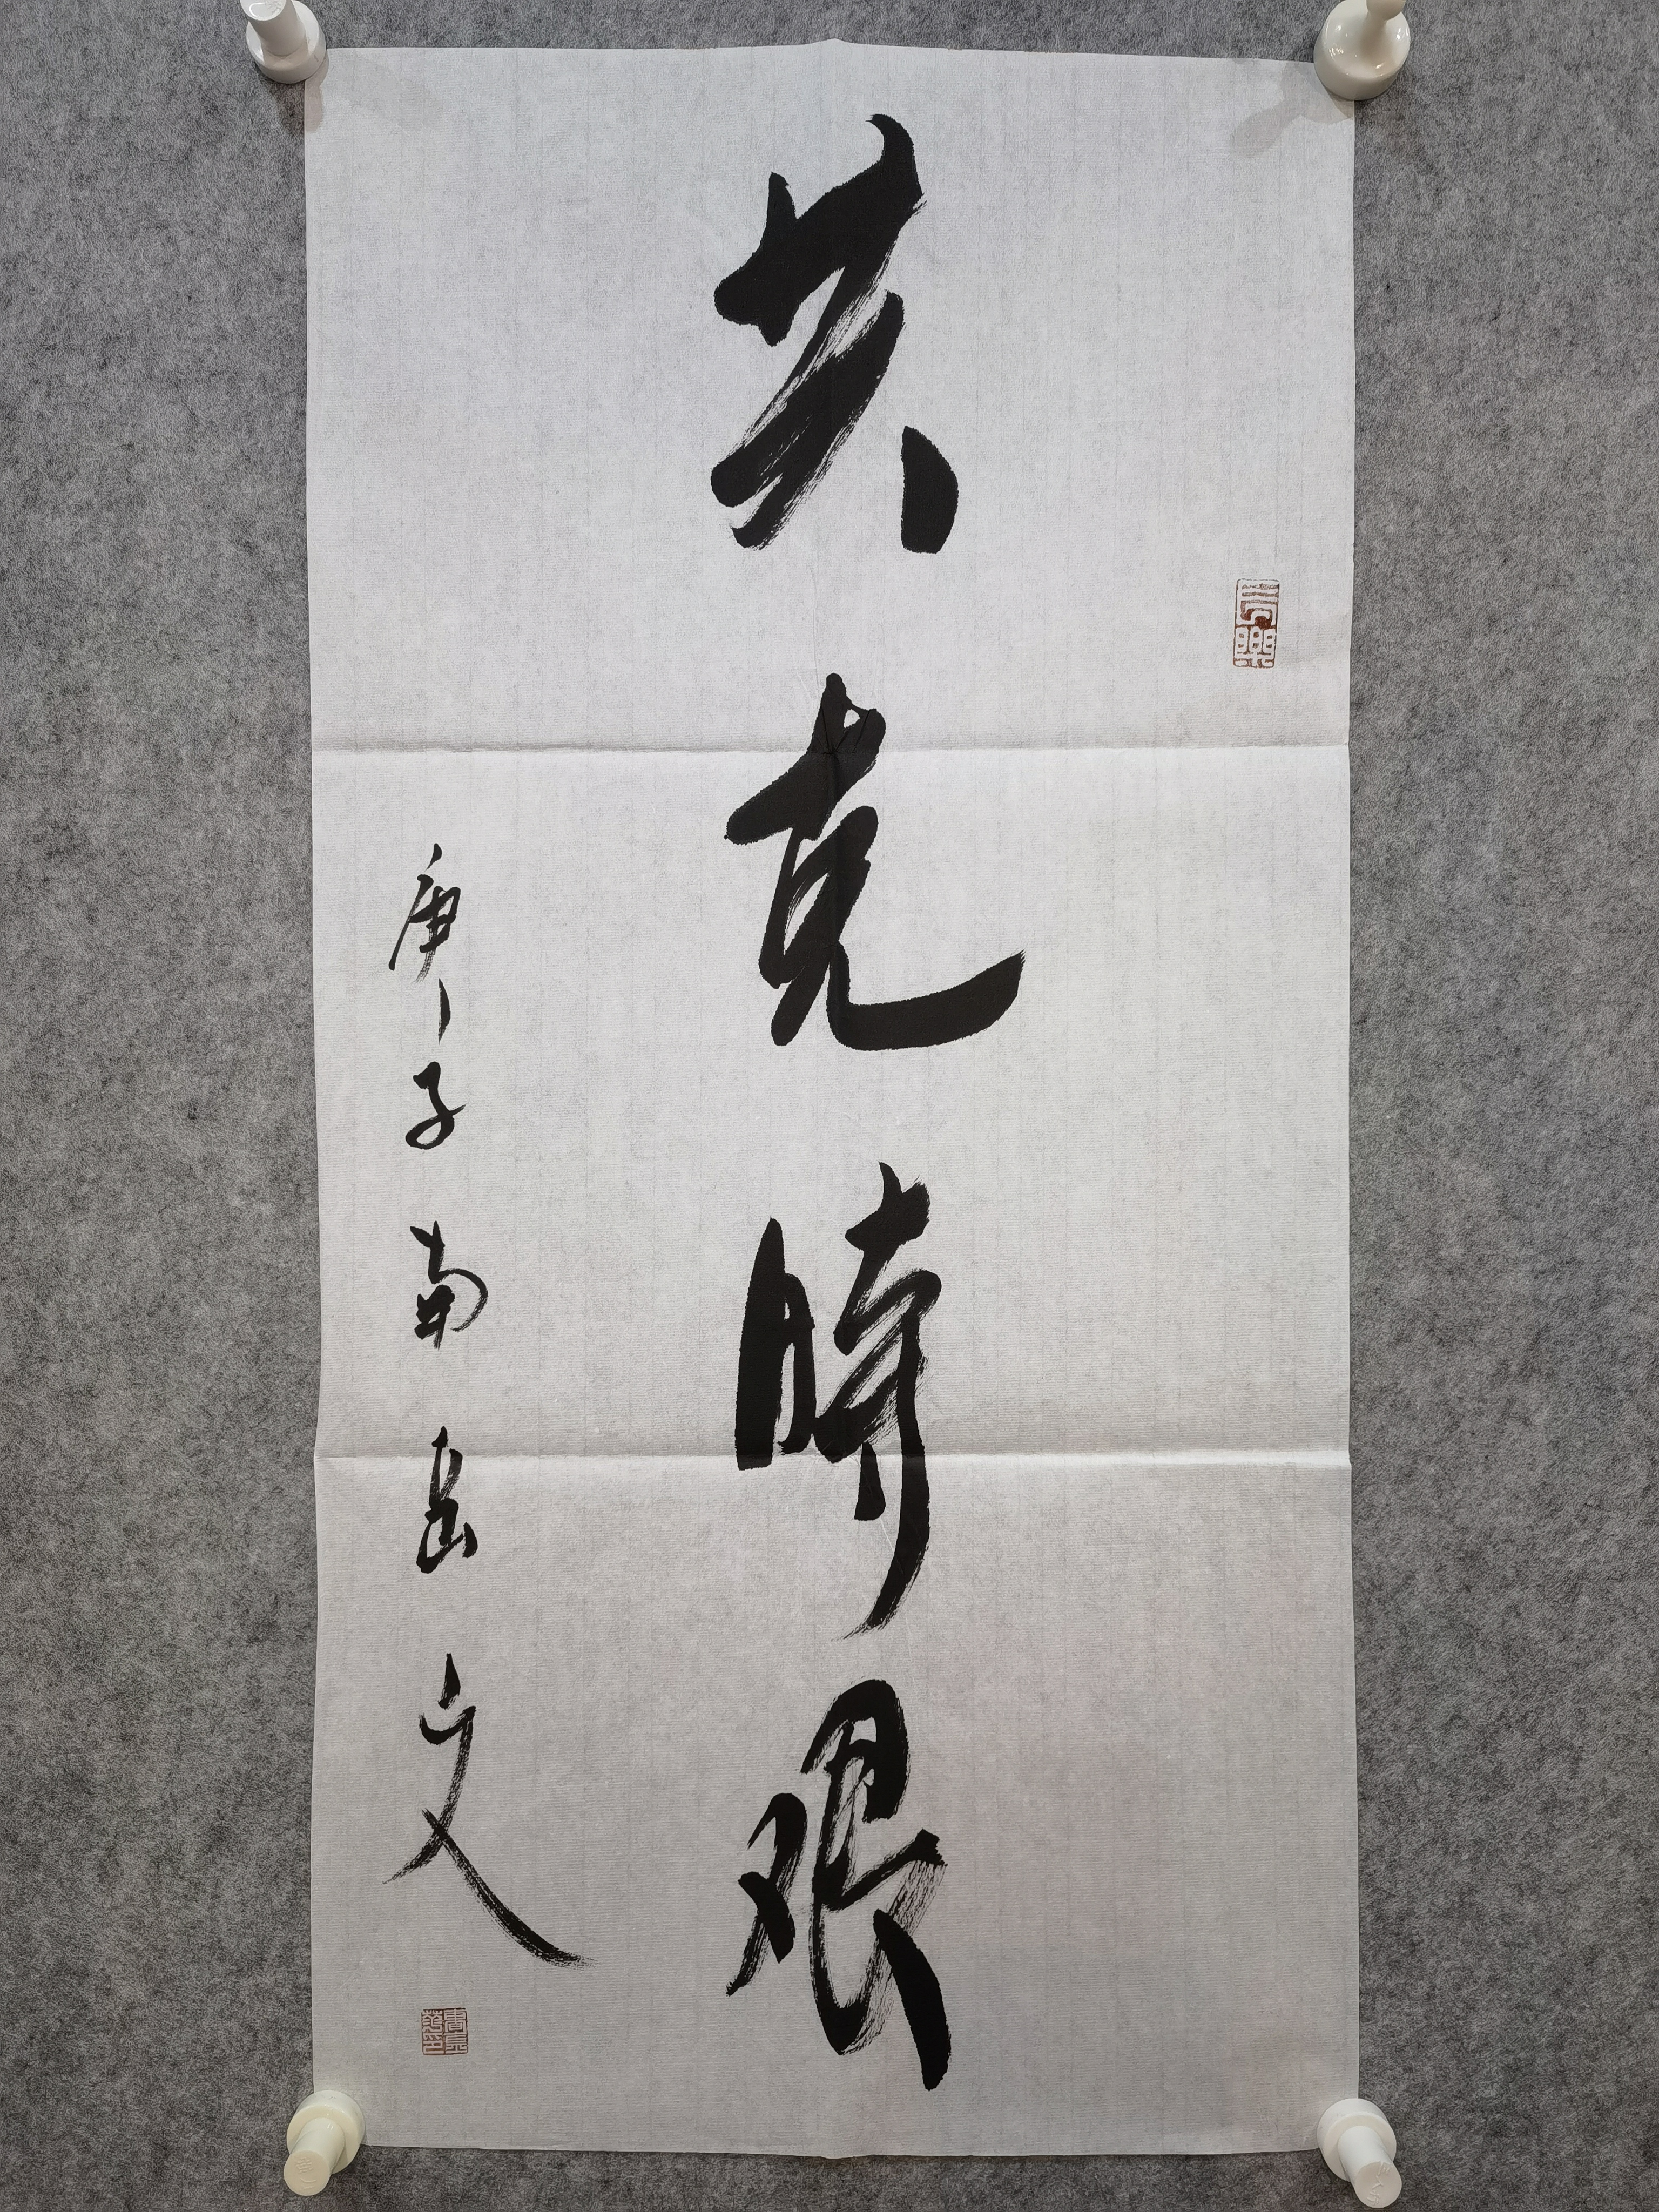 共克時艱
庚子南岳文